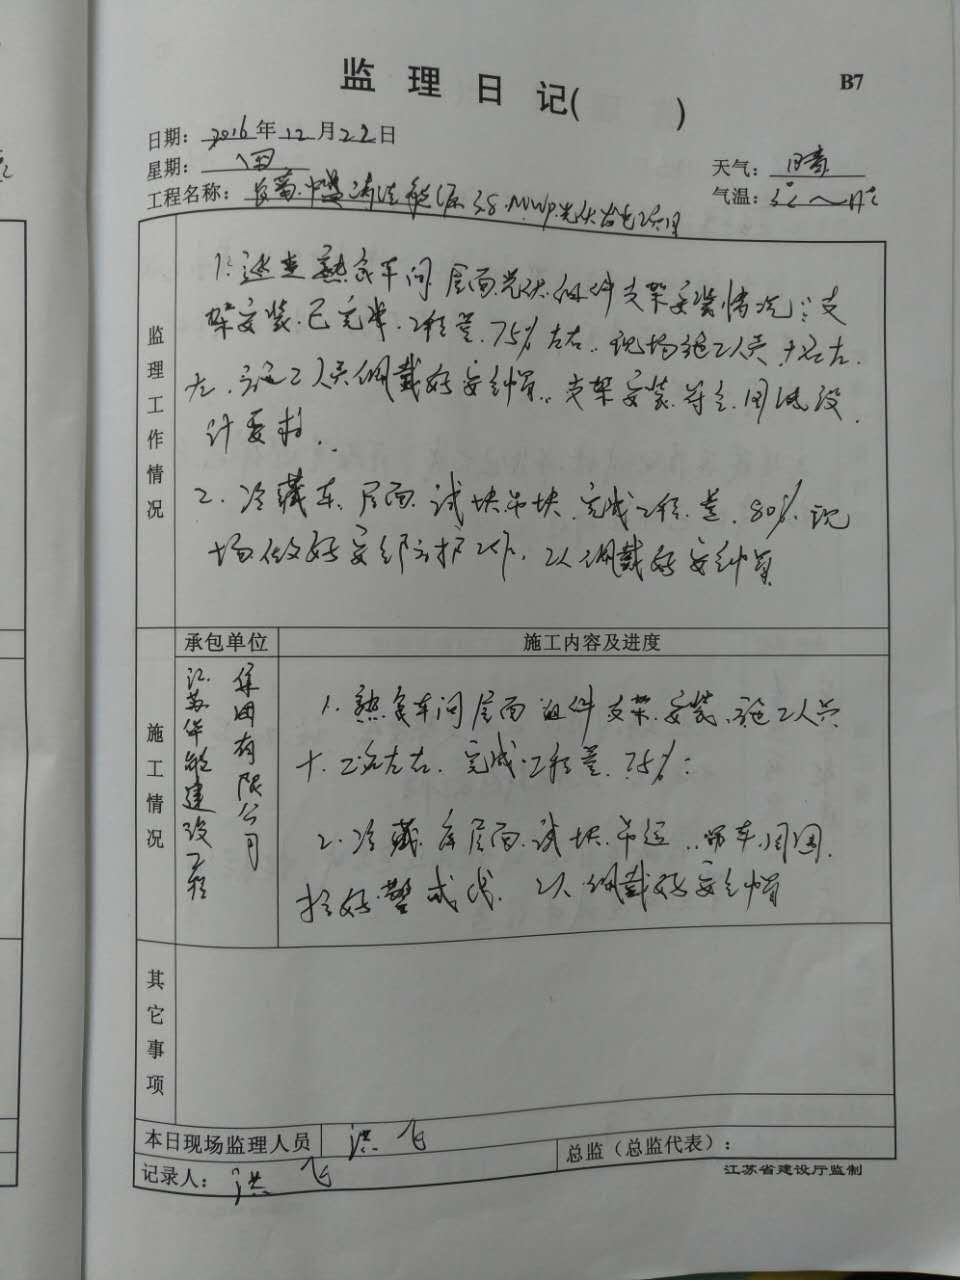 监 理 日 记(        )
B7
日期：2016年12月22日
星期：四
天气：晴
工程名称：中盛清洁能源3.8MWp光伏发电项目
气温：
监理工作情况
1. 巡查熟食车间屋面光伏组件支架安装情况：支
架安装已完成工程量75%左右。现场施工人员十名左
右，施工人员佩戴好安全帽。支架安装符合图纸设
计要求。
2. 冷藏库屋面试块吊块完成工程量80%现
场做好安全防护工作，工人佩戴好安全帽
施工情况
承包单位
施工内容及进度
江苏华能建设工程
集团有限公司
1. 熟食车间屋面组件支架安装，施工人员
十二名左右，完成工程量75%；
2. 冷藏库屋面试块吊运，吊车周围
拉好警戒线，工人佩戴好安全帽
其它事项
本日现场监理人员 洪飞
总监（总监代表）：
记录人：洪飞
江苏省建设厅监制